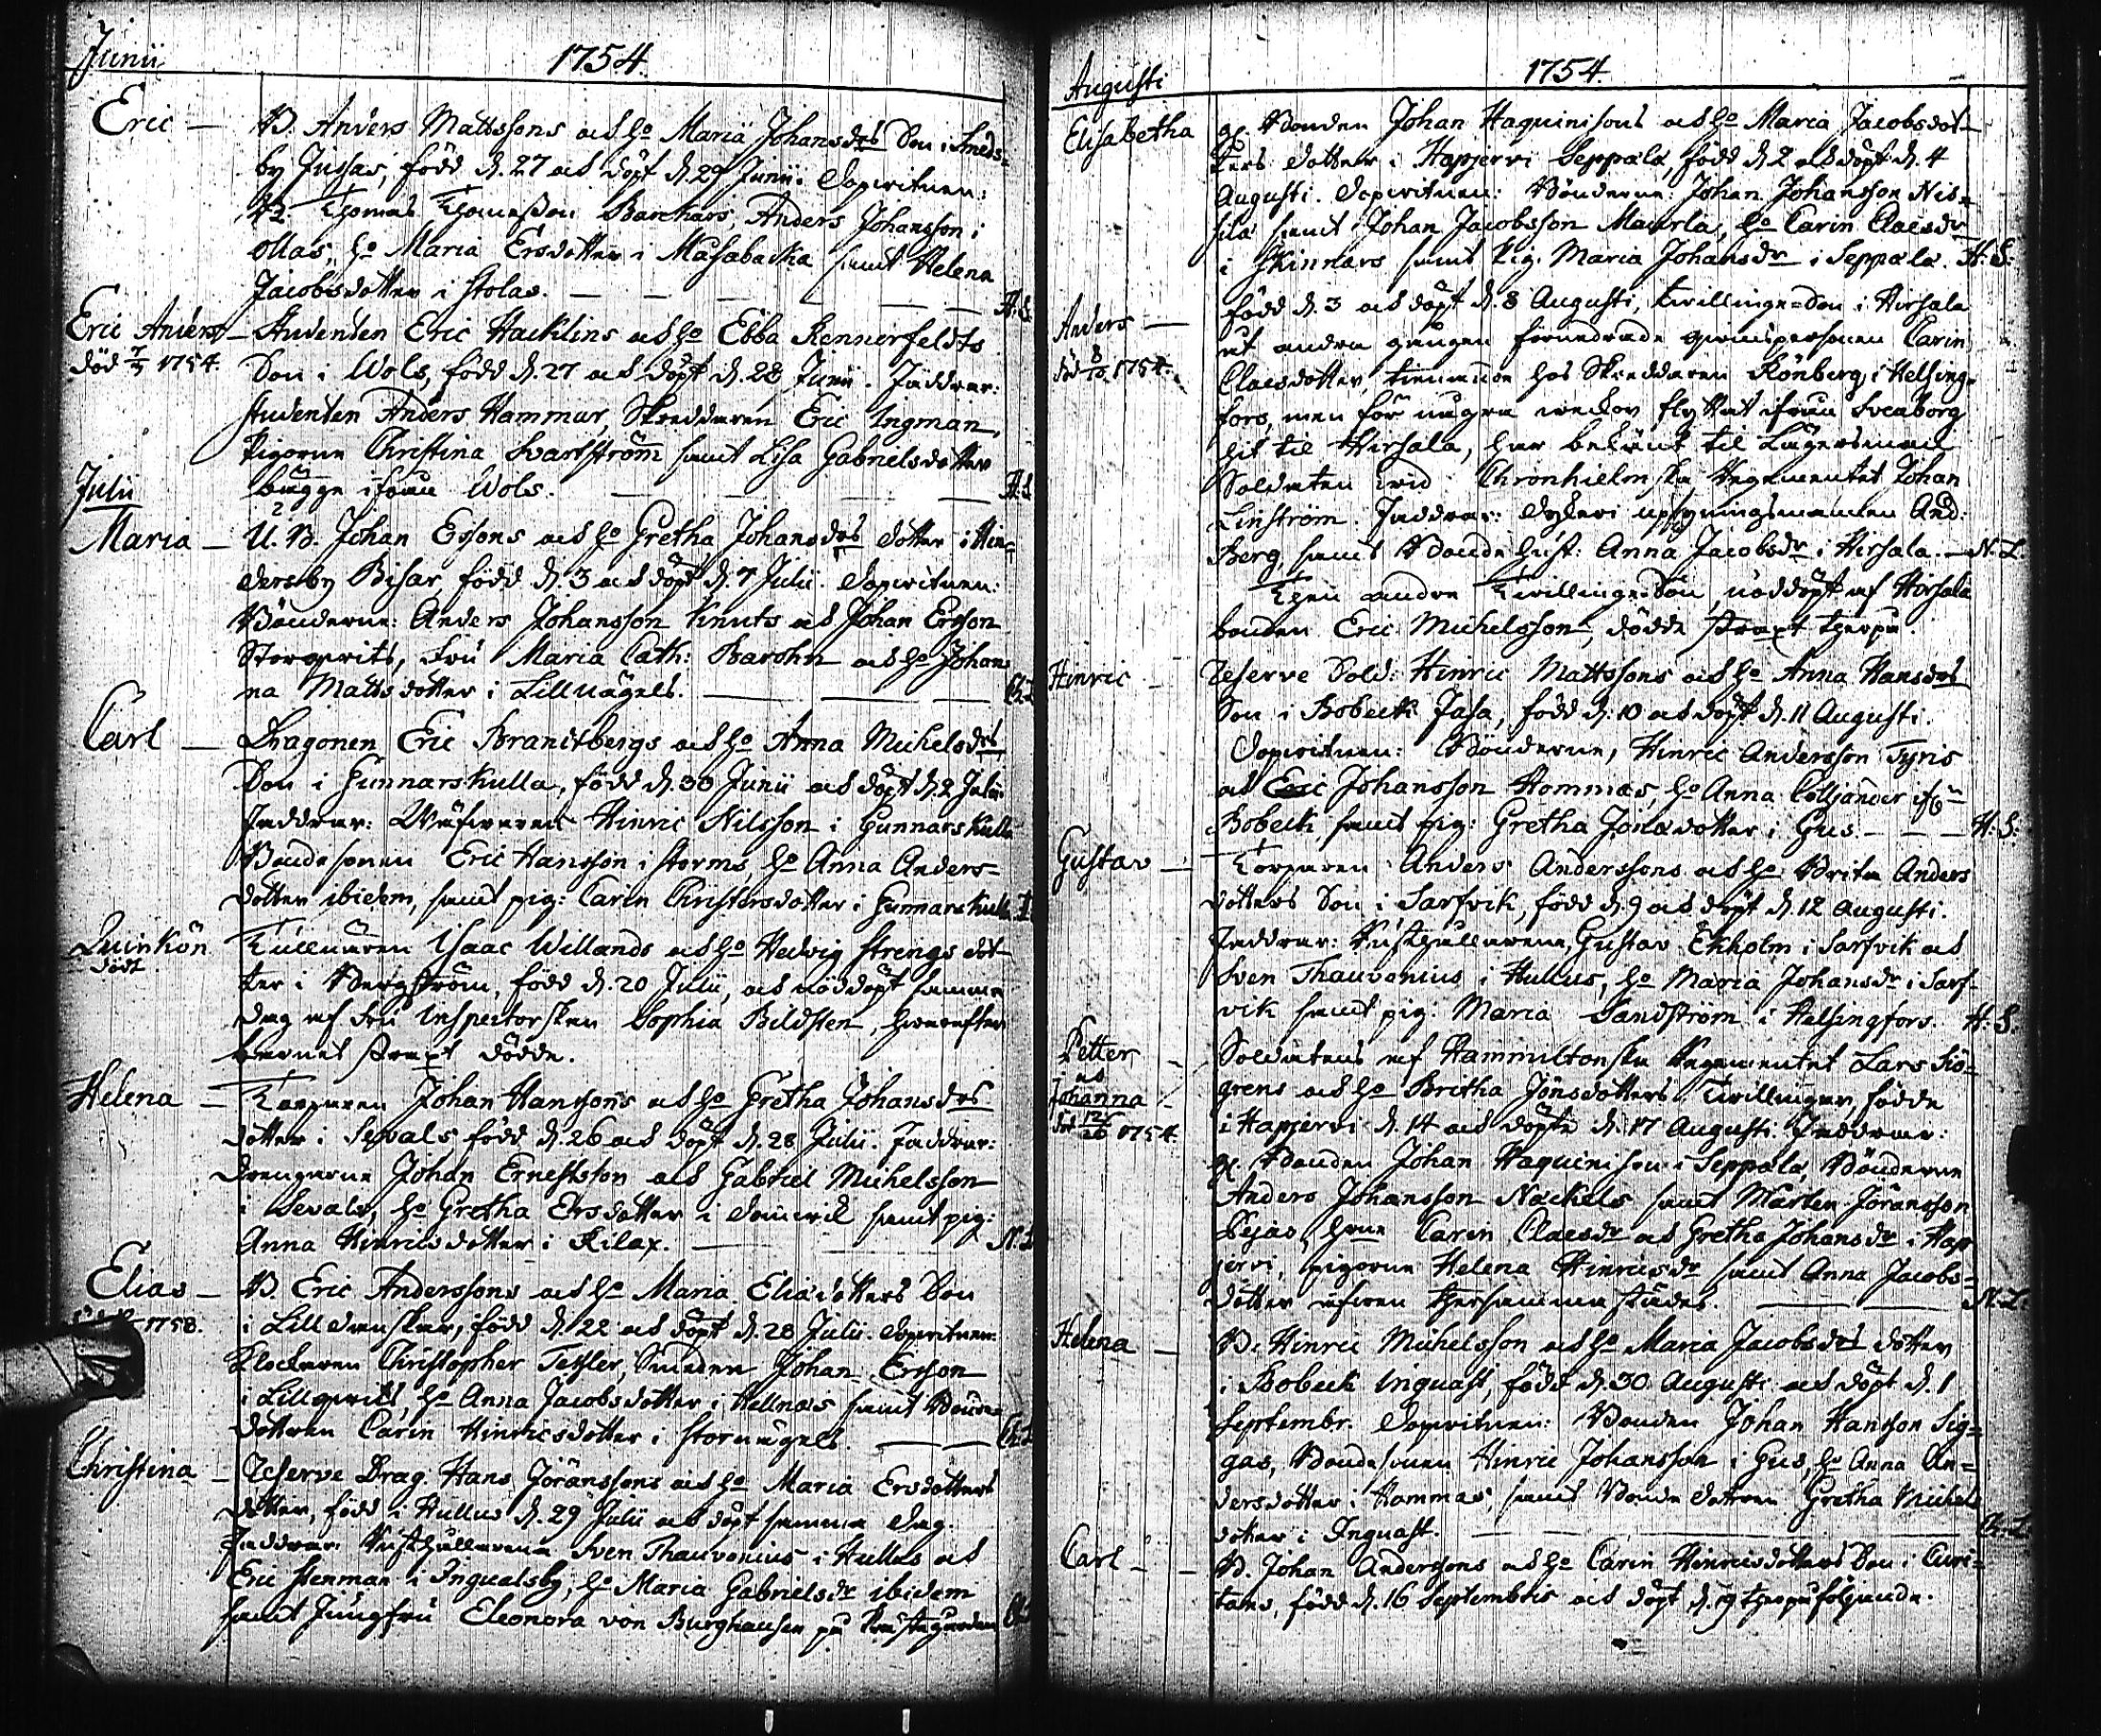 Junii 1754.
Eric — B. Anders Mattssons ock ho Maria Johansdrs Son i Smeds=
by Jussas, född d. 27 ock döpt d. 29 Junii. Dopwitnen:
Thomas Thomasson Backars, Anders Johansson i
Ollas, ho Maria Ersdotter i Masabacka samt Helena
Jacobsdotter i Stolas. — — — — H. S.
Eric Anders — Studenten Eric Hacklins ock ho Ebba Rennerfeldts
död 7/7 1754. Son i Wols, född d. 27 ock döpt d. 28 Junii. Faddrar:
Studenten Anders Hammar, Skreddaren Eric Ingman,
Pigorna Christina Svartström samt Lisa Gabrielsdotter
bägge ifrån Wols. — — — H. S.
Julii
Maria — U. B. Johan Ersons ock ho Gretha Johansdrs dotter i Hin=
dersby Bisar, född d. 3 ock döpt d. 7 Julii. Dopwitnen:
Bönderne: Anders Johansson Knuts ock Johan Erson
Storgrits, Fru Maria Cath: Barohn ock ho Johan
na Mattsdotter i Lillnägels. — —
Carl — Dragonen Eric Brandtbergs ock ho Anna Michelsdrs
Son i Gunnarskulla, född d. 30 Junii ock döpt d. 2 Julii.
Faddrar: Wäfwaren Hinric Nilsson i Gunnarskulla
Bondesonen Eric Hansson i Storms, ho Anna Anders=
dotter ibidem, samt pig: Carin Christersdotter i Gunnarskulla
Qwinkön Tullnären Isaac Willands ock ho Hedvig Strengs dot=
dödt. ter i Bergström, född d. 20 Julii, ock nöddöpt samma
dag af Fru Inspectorskan Sophia Bildsten, hwarefter
barnet straxt dödde.
Helena — Torparen Johan Hanssons ock ho Gretha Johansdrs
dotter i Sevals, född d. 26 ock döpt d. 28 Julii. Faddrar:
Drengarne Johan Ernestsson ock Gabriel Michelsson
i Sevals, ho Gretha Ersdotter i samt pig:
Anna Hinricsdotter i Kilax. — N. L.
Elias — B. Eric Anderssons ock ho Maria Eliædotters Son
1758. i Lill, född d. 22 ock döpt d. 28 Julii. Dopwitnen:
Klockaren Christopher Tessler, Smeden Johan Erson
i Lillgrits, ho Anna Jacobsdotter i Hellnäs samt Bonde=
dotteren Carin Hinricsdotter i Stornägels. — —
Christina — Reserve Drag: Hans Jöranssons ock ho Maria Ersdotters
dotter, född i Hullus d. 29 Julii ock döpt samma dag.
Faddrar: Rusthållarena Sven Thauvonius i Hullus ock
Eric Stenman i Ingvalsby, ho Maria Gabrielsdr ibidem
samt Jungfru Eleonora von Burghausen på Prästegården
Augusti 1754.
Elisabetha Bonden Johan Haquinisons ock ho Maria Jacobsdot=
ters dotter i Hapjervi Seppälä, född d. 2 ock döpt d. 4
Augusti. Dopwitnen: Bönderna: Johan Johansson Nis=
silä samt Johan Jacobsson Maurla, ho Carin Claesdr
i Skinnars samt Pig. Maria Johansdr i Seppälä. H. S.
Anders — född d. 3 ock döpt d. 8 Augusti, twillinge=Son i Hirsala
död 8/10 1754. ut andra gången förnedrade qwinspersonen Carin
Claesdotter, tienande hos Skreddaren Rönberg i Helsing=
fors, men för några weckor flyttat ifrån Sveaborg
hit til Hirsala, har bekänt til Lägersman
Soldaten wid Chronhielmska Regementet Johan
Linström. Faddrar: upsyningsmannen And:
Berg, samt Bonde hust: Anna Jacobsdr i Hirsala. — N. L.
Then andre Twillinge=Son, nöddöpt af Hirsala
bonden Eric Michelsson, dödde straxt therpå.
Hinric — Reserve Sold: Hinric Mattssons ock ho Anna Hansdrs
Son i Bobeck Jasa, född d. 10 ock döpt d. 11 Augusti.
Dopwitnen: Bönderne, Hinric Andersson Tyris
ock Eric Johansson Hommas, ho Anna Colljander ifrån
Bobeck, samt pig: Gretha Jonædotter i Gus. — — — H. S.
Gustav — Torparen Anders Anderssons ock ho Brita Anders
dotters Son i Sarfvik, född d. 9 ock döpt d. 12 Augusti.
Faddrar: Rusthållarena Gustav Ekholm i Sarfvik ock
Sven Thauvonius i Hullus, ho Maria Johansdr i Sarf=
vik samt pig: Maria Sandström i Helsingfors. H. S.
Petter — Soldatens af Hammiltonska Regementet Lars Siö=
ock grens ock ho Britha Jönsdotters Twillingar, födde
Johanna — i Hapjervi d. 14 ock döpte d. 17 Augusti. Faddrar:
död 12/26 1754. Bonden Johan Haquinison i Seppälä, Bönderne
Anders Johansson Näckels samt Mårten Jöransson
Pejas, ho Carin Claesdr ock Gretha Johansdr i Hap
jervi, pigorna Helena Hinricsdr samt Anna Jacobs=
dotter äfwen thersammastädes. — — N. L.
Helena — B. Hinric Michelsson ock ho Maria Jacobsdrs dotter
i Bobeck Inguast, född d. 30 Augusti ock döpt d. 1
Septembr. Dopwitnen: Bonden Johan Hansson Sig=
gas, Bondesonen Hinric Johansson i Gus, ho Anna An=
dersdotter i Hammas, samt Bonde dotren Gretha Michels
dotter i Inguast. — — —
Carl — B. Johan Anderssons ock ho Carin Hinricsdotters Son i Curi=
tans, född d. 16 Septembris ock döpt d. 19 therpåföljande.